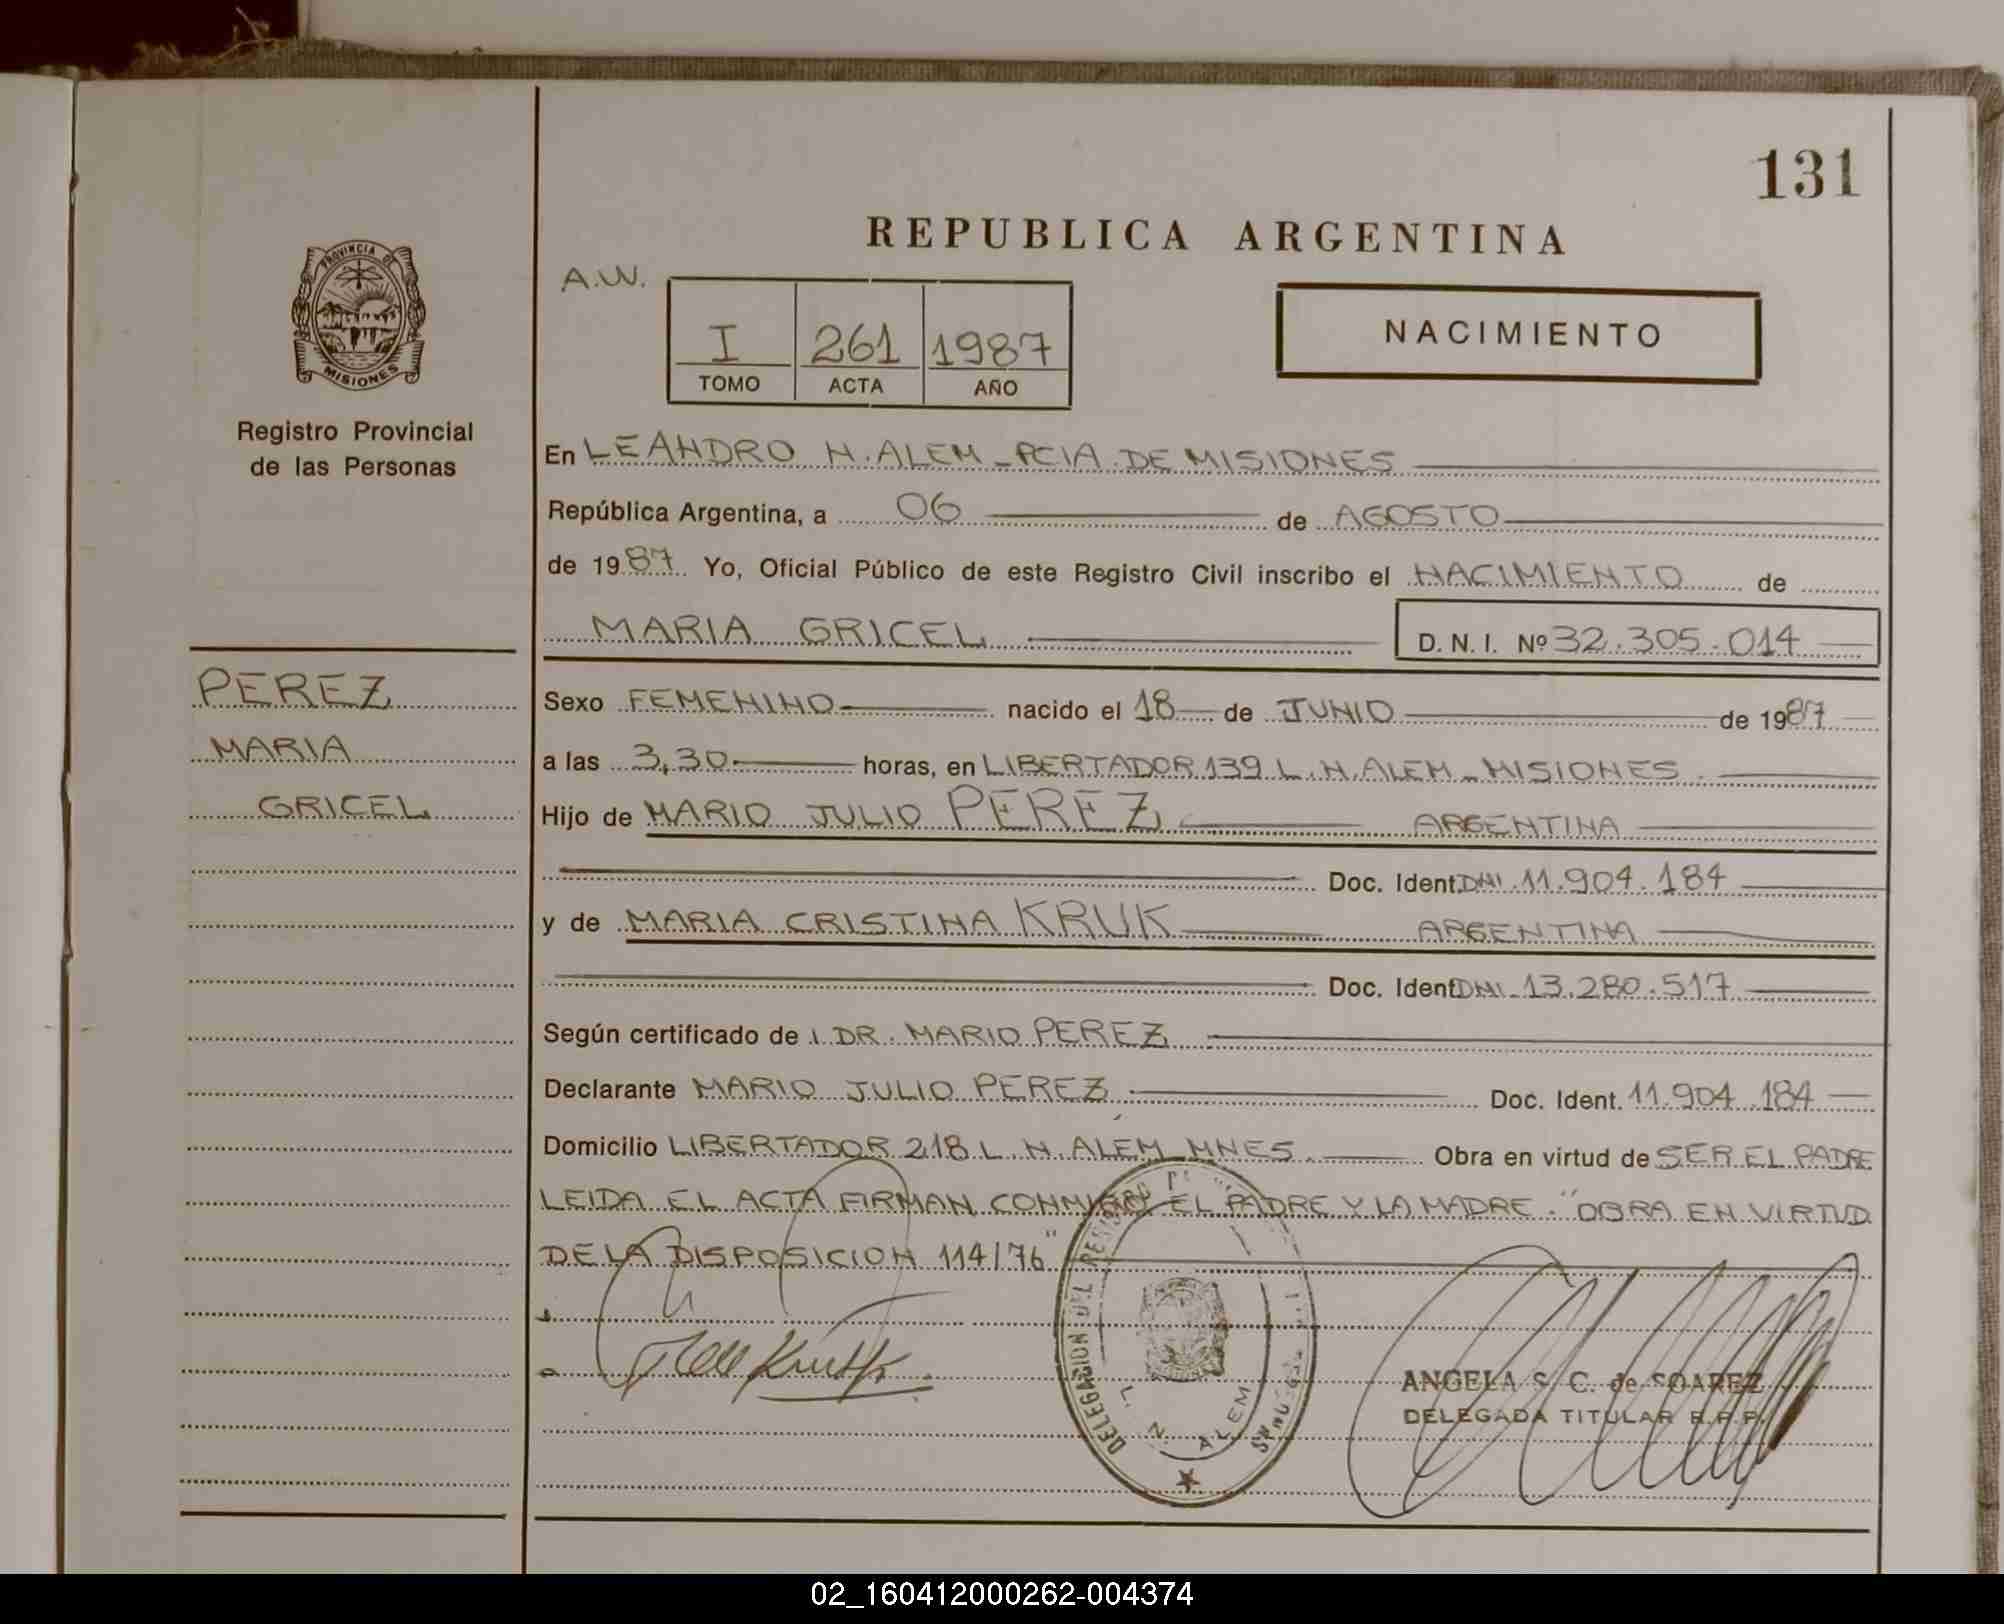 131
REPUBLICA ARGENTINA
A.W.
I 261 1987
TOMO ACTA AÑO
NACIMIENTO
PROVINCIA DE
MISIONES
Registro Provincial
de las Personas
PEREZ
MARIA
GRICEL
En LEANDRO N. ALEM - PCIA. DE MISIONES
República Argentina, a 06 de AGOSTO
de 1987 Yo, Oficial Público de este Registro Civil inscribo el NACIMIENTO de
MARIA GRICEL D. N. I. Nº 32.305.014
Sexo FEMENINO nacido el 18 de JUNIO de 1987
a las 3,30 horas, en LIBERTADOR 139 L. N. ALEM - MISIONES
Hijo de MARIO JULIO PEREZ ARGENTINA
Doc. Ident. DNI. 11.904.184
y de MARIA CRISTINA KRUK ARGENTINA
Doc. Ident. DNI. 13.280.517
Según certificado de DR. MARIO PEREZ
Declarante MARIO JULIO PEREZ Doc. Ident. 11.904.184
Domicilio LIBERTADOR 218 L. N. ALEM MNES. Obra en virtud de SER EL PADRE
LEIDA EL ACTA FIRMAN CONMIGO EL PADRE Y LA MADRE. "OBRA EN VIRTUD
DE LA DISPOSICION 114/76"
DELEGACION DEL REGISTRO
L. N. ALEM
ANGELA S. C. de SOAREZ
DELEGADA TITULAR R.P.P.
02_160412000262-004374